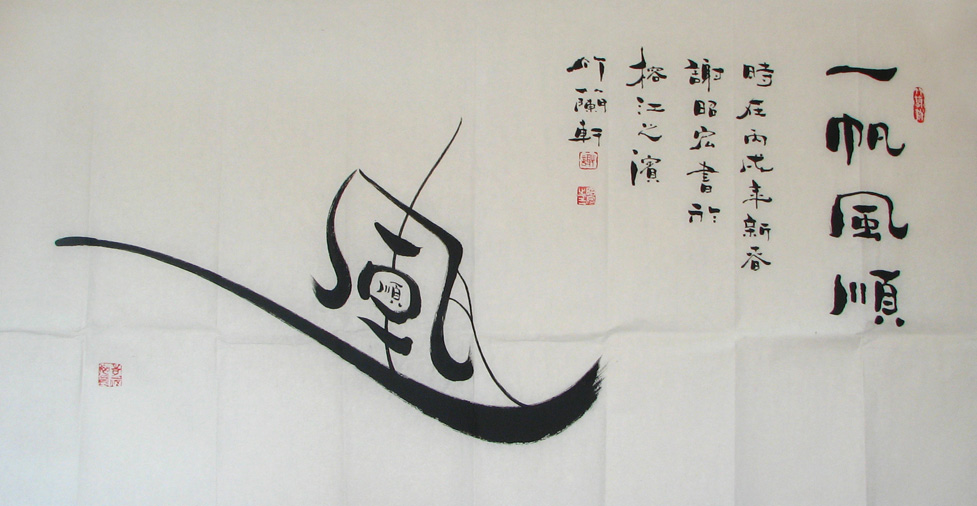 一帆風順
時在丙戌年新春
謝昭宏書於
榕江之濱
竹蘭軒
順